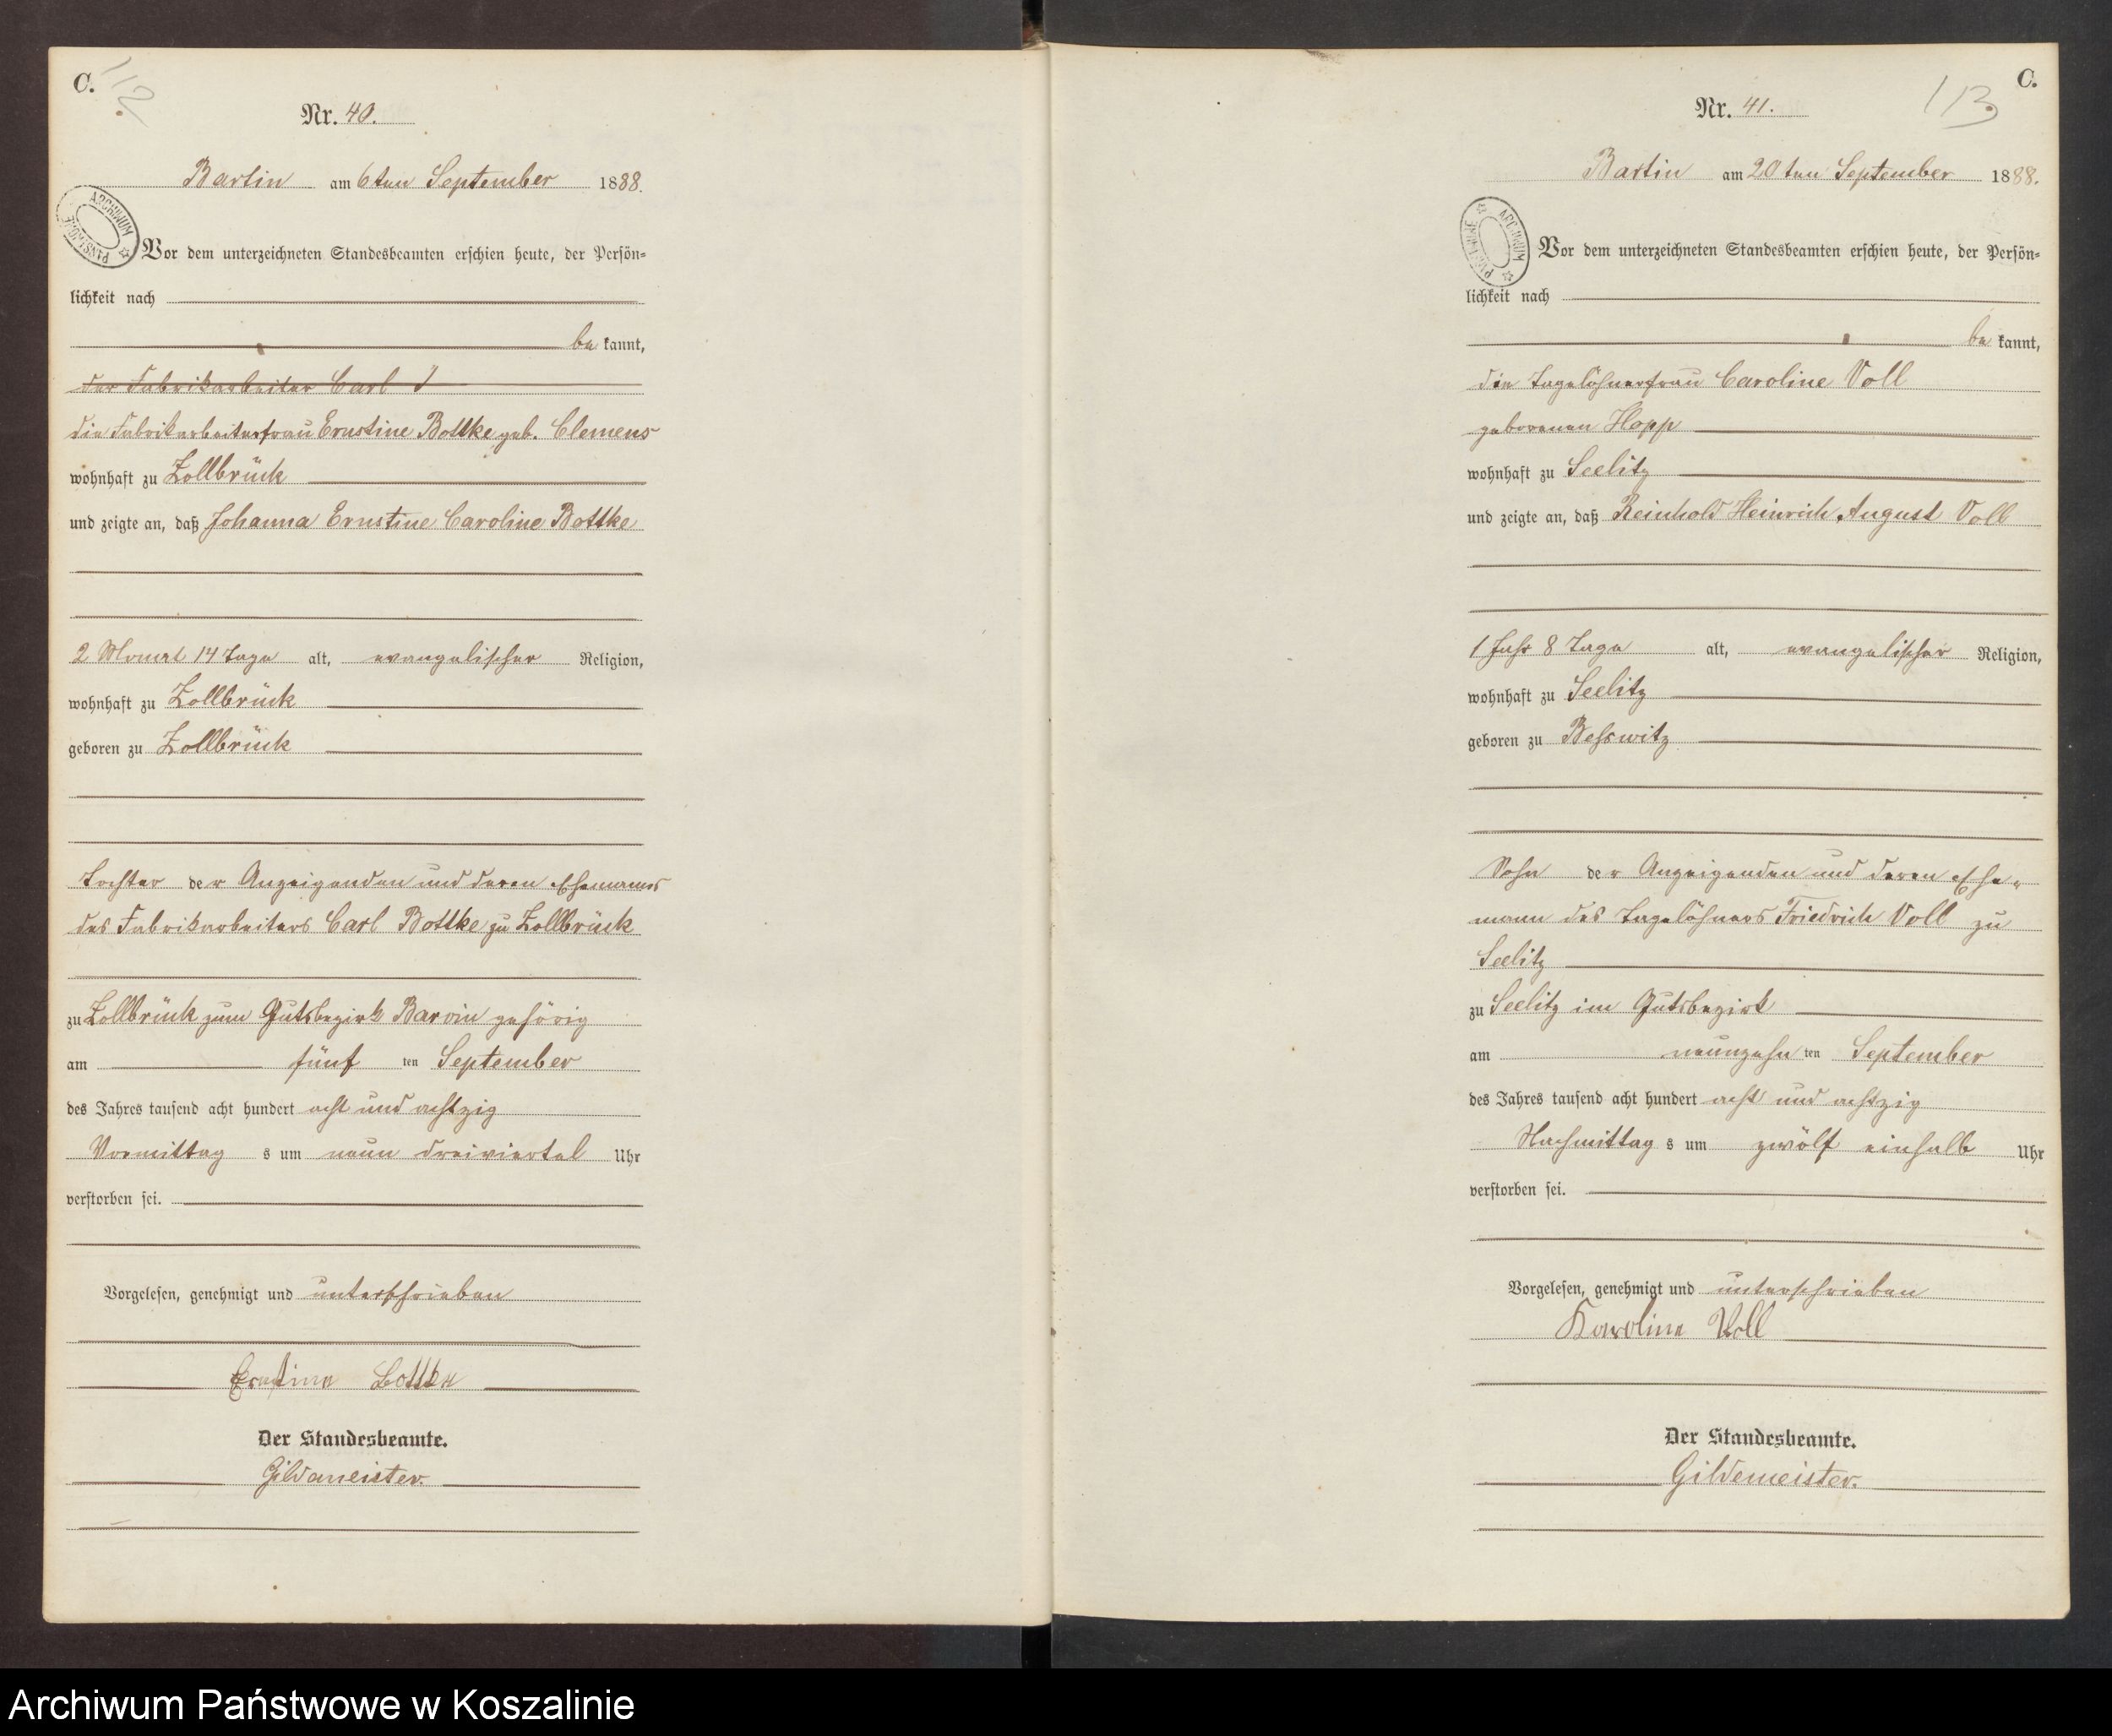 C.
112
Nr. 40.
Bartin am 6ten September 1888.
ARCHIWUM PAŃSTWOWE
Vor dem unterzeichneten Standesbeamten erschien heute, der Persön=
lichkeit nach
be kannt,
der Fabrikarbeiter Carl
die Fabrikarbeiterfrau Ernstine Bottke geb. Clemens
wohnhaft zu Zollbrück
und zeigte an, daß Johanna Ernstine Caroline Bottke
2 Monat 14 Tage alt, evangelischer Religion,
wohnhaft zu Zollbrück
geboren zu Zollbrück
Tochter der Anzeigenden und deren Ehemannes
des Fabrikarbeiters Carl Bottke zu Zollbrück
zu Zollbrück zum Gutsbezirk Barvin gehörig
am fünf ten September
des Jahres tausend acht hundert acht und achtzig
Vormittag s um neun dreiviertel Uhr
verstorben sei.
Vorgelesen, genehmigt und unterschrieben
Ernstine Bottke
Der Standesbeamte.
Gildemeister.
C.
113
Nr. 41.
Bartin am 20ten September 1888.
ARCHIWUM PAŃSTWOWE
Vor dem unterzeichneten Standesbeamten erschien heute, der Persön=
lichkeit nach
be kannt,
die Tagelöhnerfrau Caroline Voll
geborenen Hopp
wohnhaft zu Seelitz
und zeigte an, daß Reinhold Heinrich August Voll
1 Jahr 8 Tage alt, evangelischer Religion,
wohnhaft zu Seelitz
geboren zu Beßwitz
Sohn der Anzeigenden und deren Ehe„
mann des Tagelöhners Friedrich Voll zu
Seelitz
zu Seelitz im Gutsbezirk
am neunzehn ten September
des Jahres tausend acht hundert acht und achtzig
Nachmittag s um zwölf einhalb Uhr
verstorben sei.
Vorgelesen, genehmigt und unterschrieben
Karoline Voll
Der Standesbeamte.
Gildemeister.
Archiwum Państwowe w Koszalinie